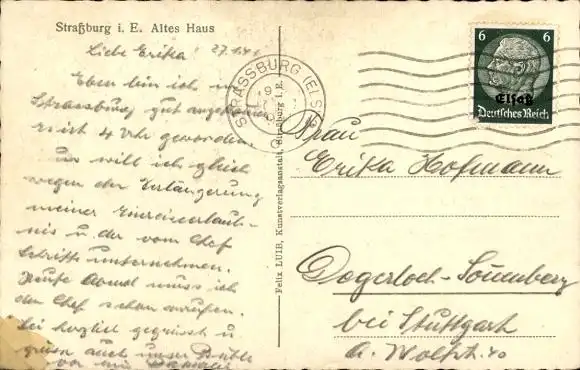 Straßburg i. E. Altes Haus
Liebe Erika! 27.1.41
Eben bin ich in
Strassburg gut angekommen
es ist 4 Uhr geworden.
will ich gleich
wegen der Verlängerung
meiner Einreiseerlaub-
nis u. der vom Chef
Schritte unternehmen.
Heute Abend muss ich
den Chef schon anrufen.
Sei herzlich gegrüsst u
grüsse auch unser
vor
Felix LUIB, Kunstverlagsanstalt, Straßburg i. E.
STRASSBURG (ELS)
6 6
Elsaß
Deutsches Reich
Frau
Erika Hofmann
Degerloch-Sonnenberg
bei Stuttgart
a. Wolfst. 40